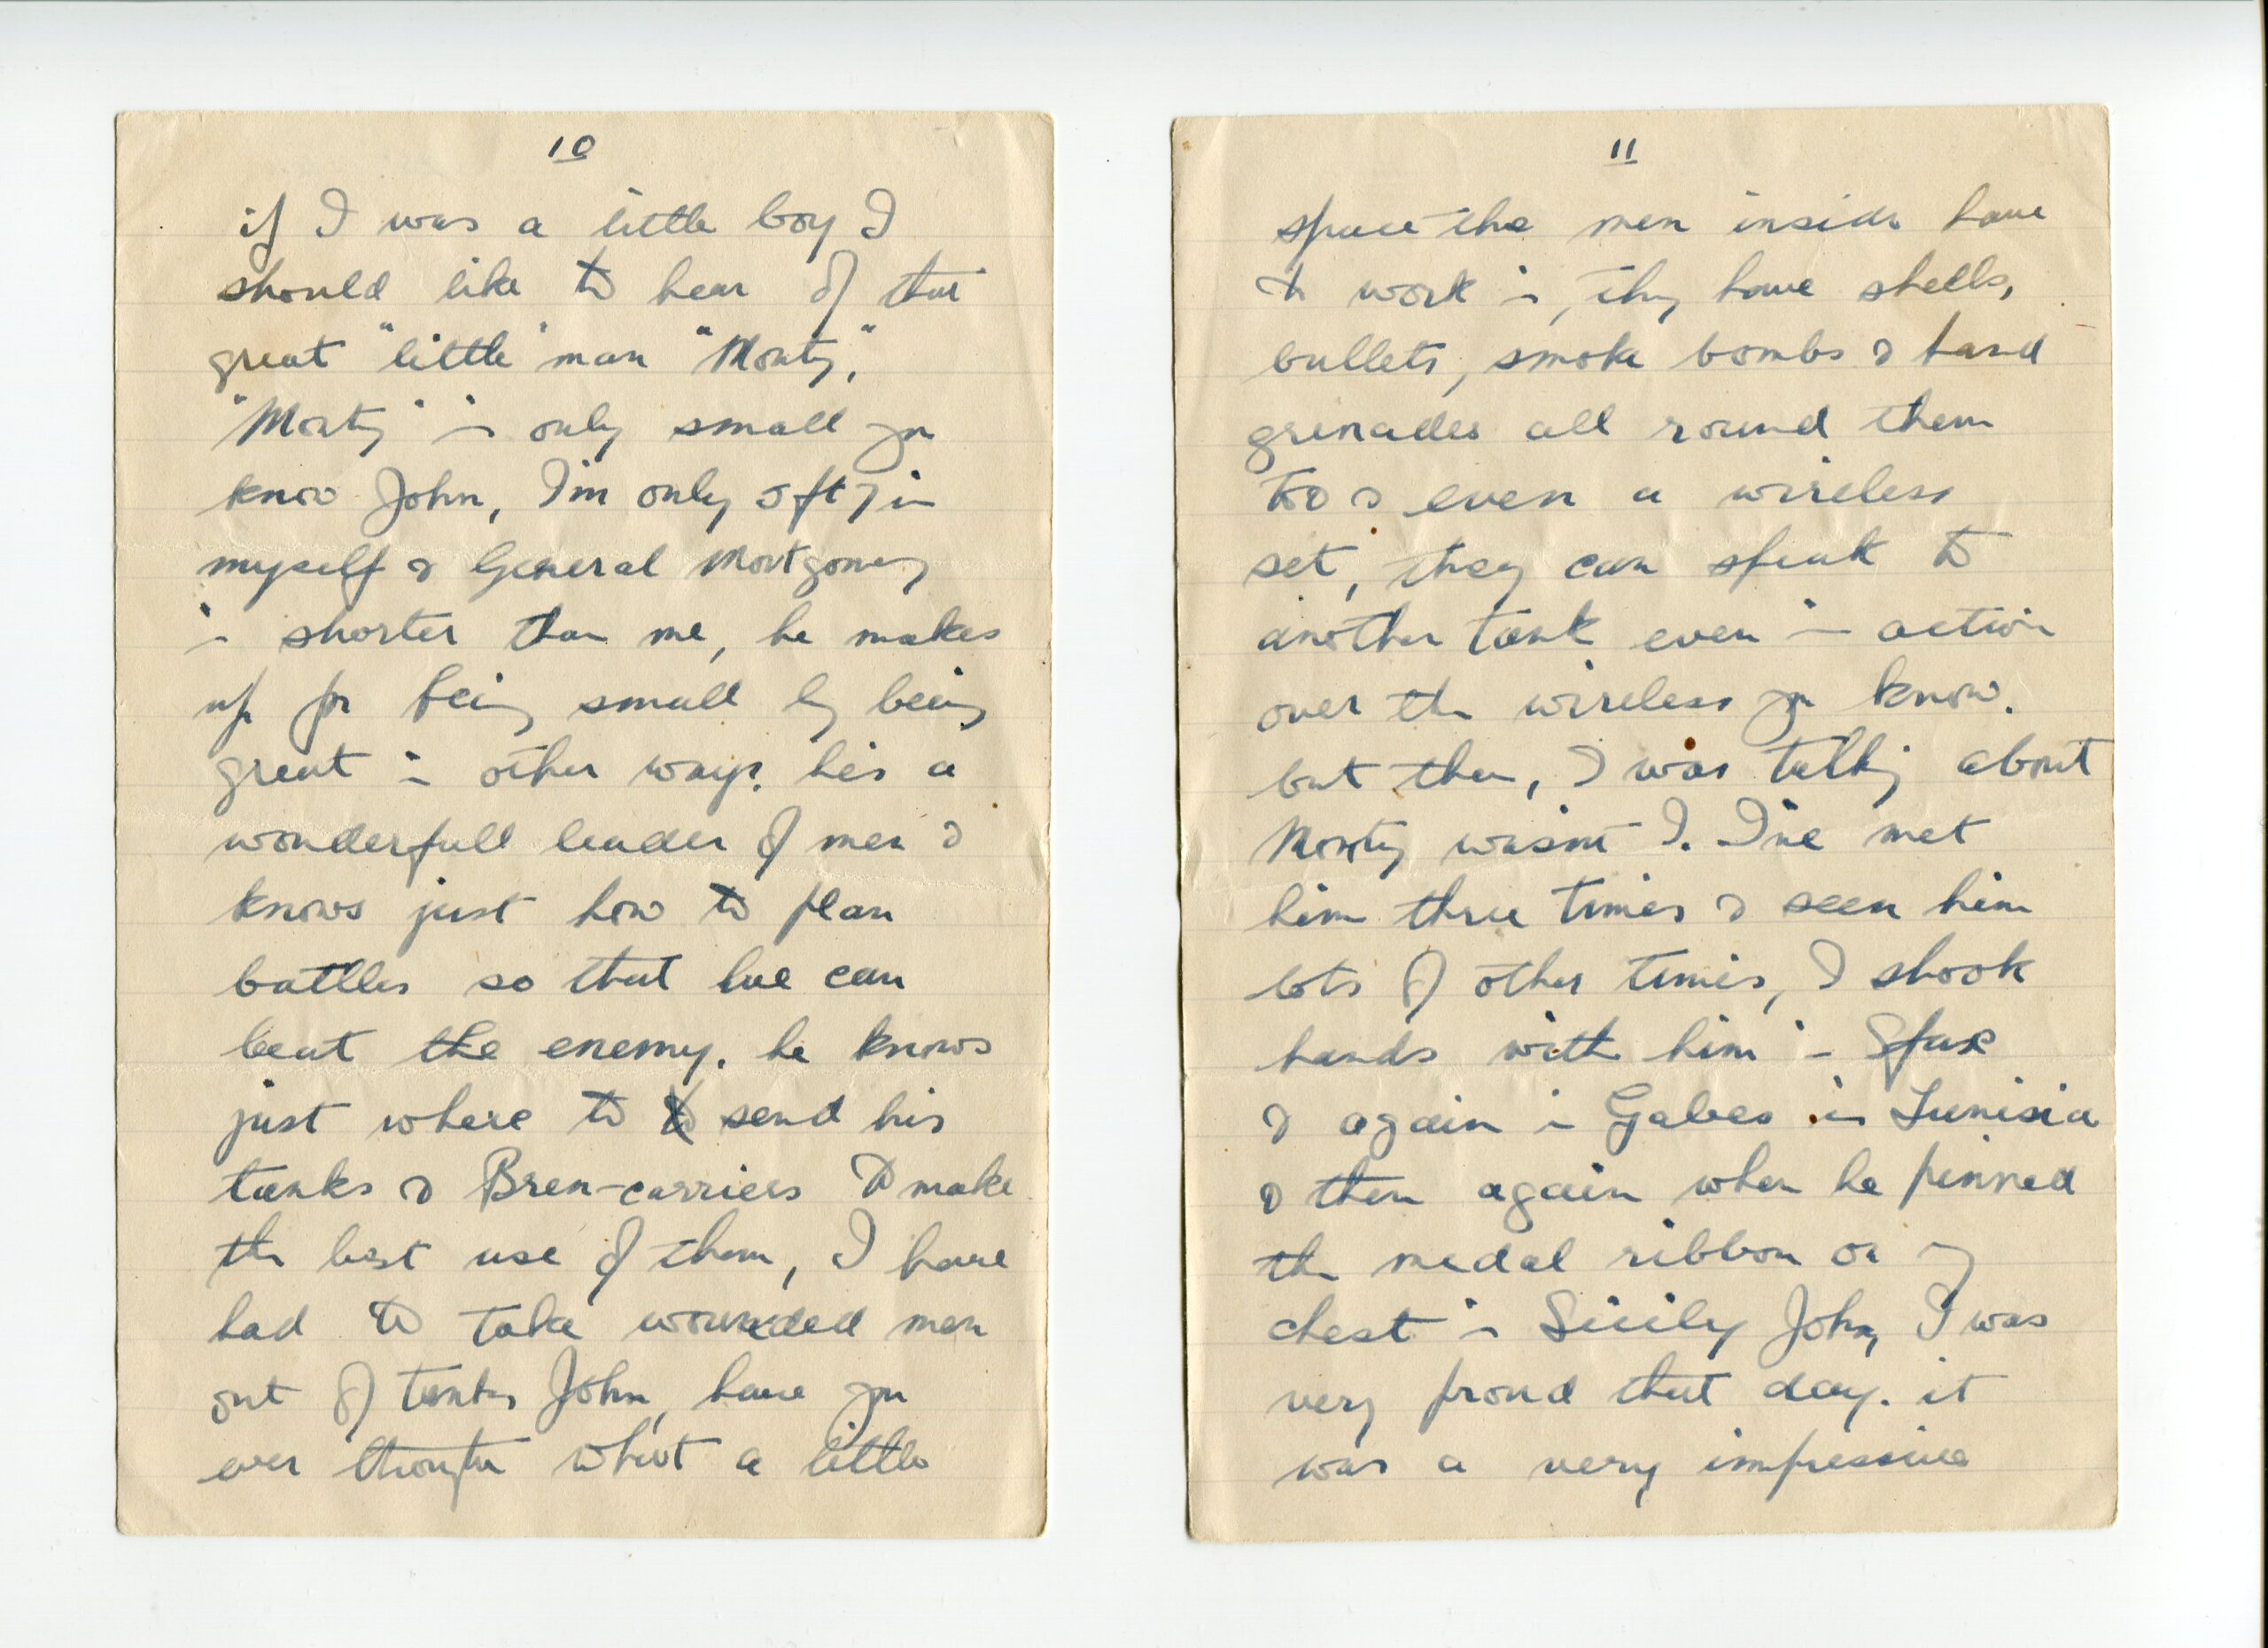 10
if I was a little boy I
should like to hear of that
great "little" man "Monty,"
"Monty" is only small you
know John, I'm only 5 ft 7 in
myself & General Montgomery
is shorter than me, he makes
up for being small by being
great in other ways. he's a
wonderfull leader of men &
knows just how to plan
battles so that we can
beat the enemy. he knows
just where to send his
tanks & Bren-carriers to make
the best use of them, I have
had to take wounded men
out of tanks John, have you
ever thought what a little
11
space the men inside have
to work in, they have shells,
bullets, smoke bombs & hand
grenades all round them
too & even a wireless
set, they can speak to
another tank even in action
over the wireless you know.
but then, I was talking about
Monty wasnt I. I've met
him three times & seen him
lots of other times, I shook
hands with him in Sfax
& again in Gabes in Tunisia
& then again when he pinned
the medal ribbon on my
chest in Sicily John, I was
very proud that day. it
was a very impressive